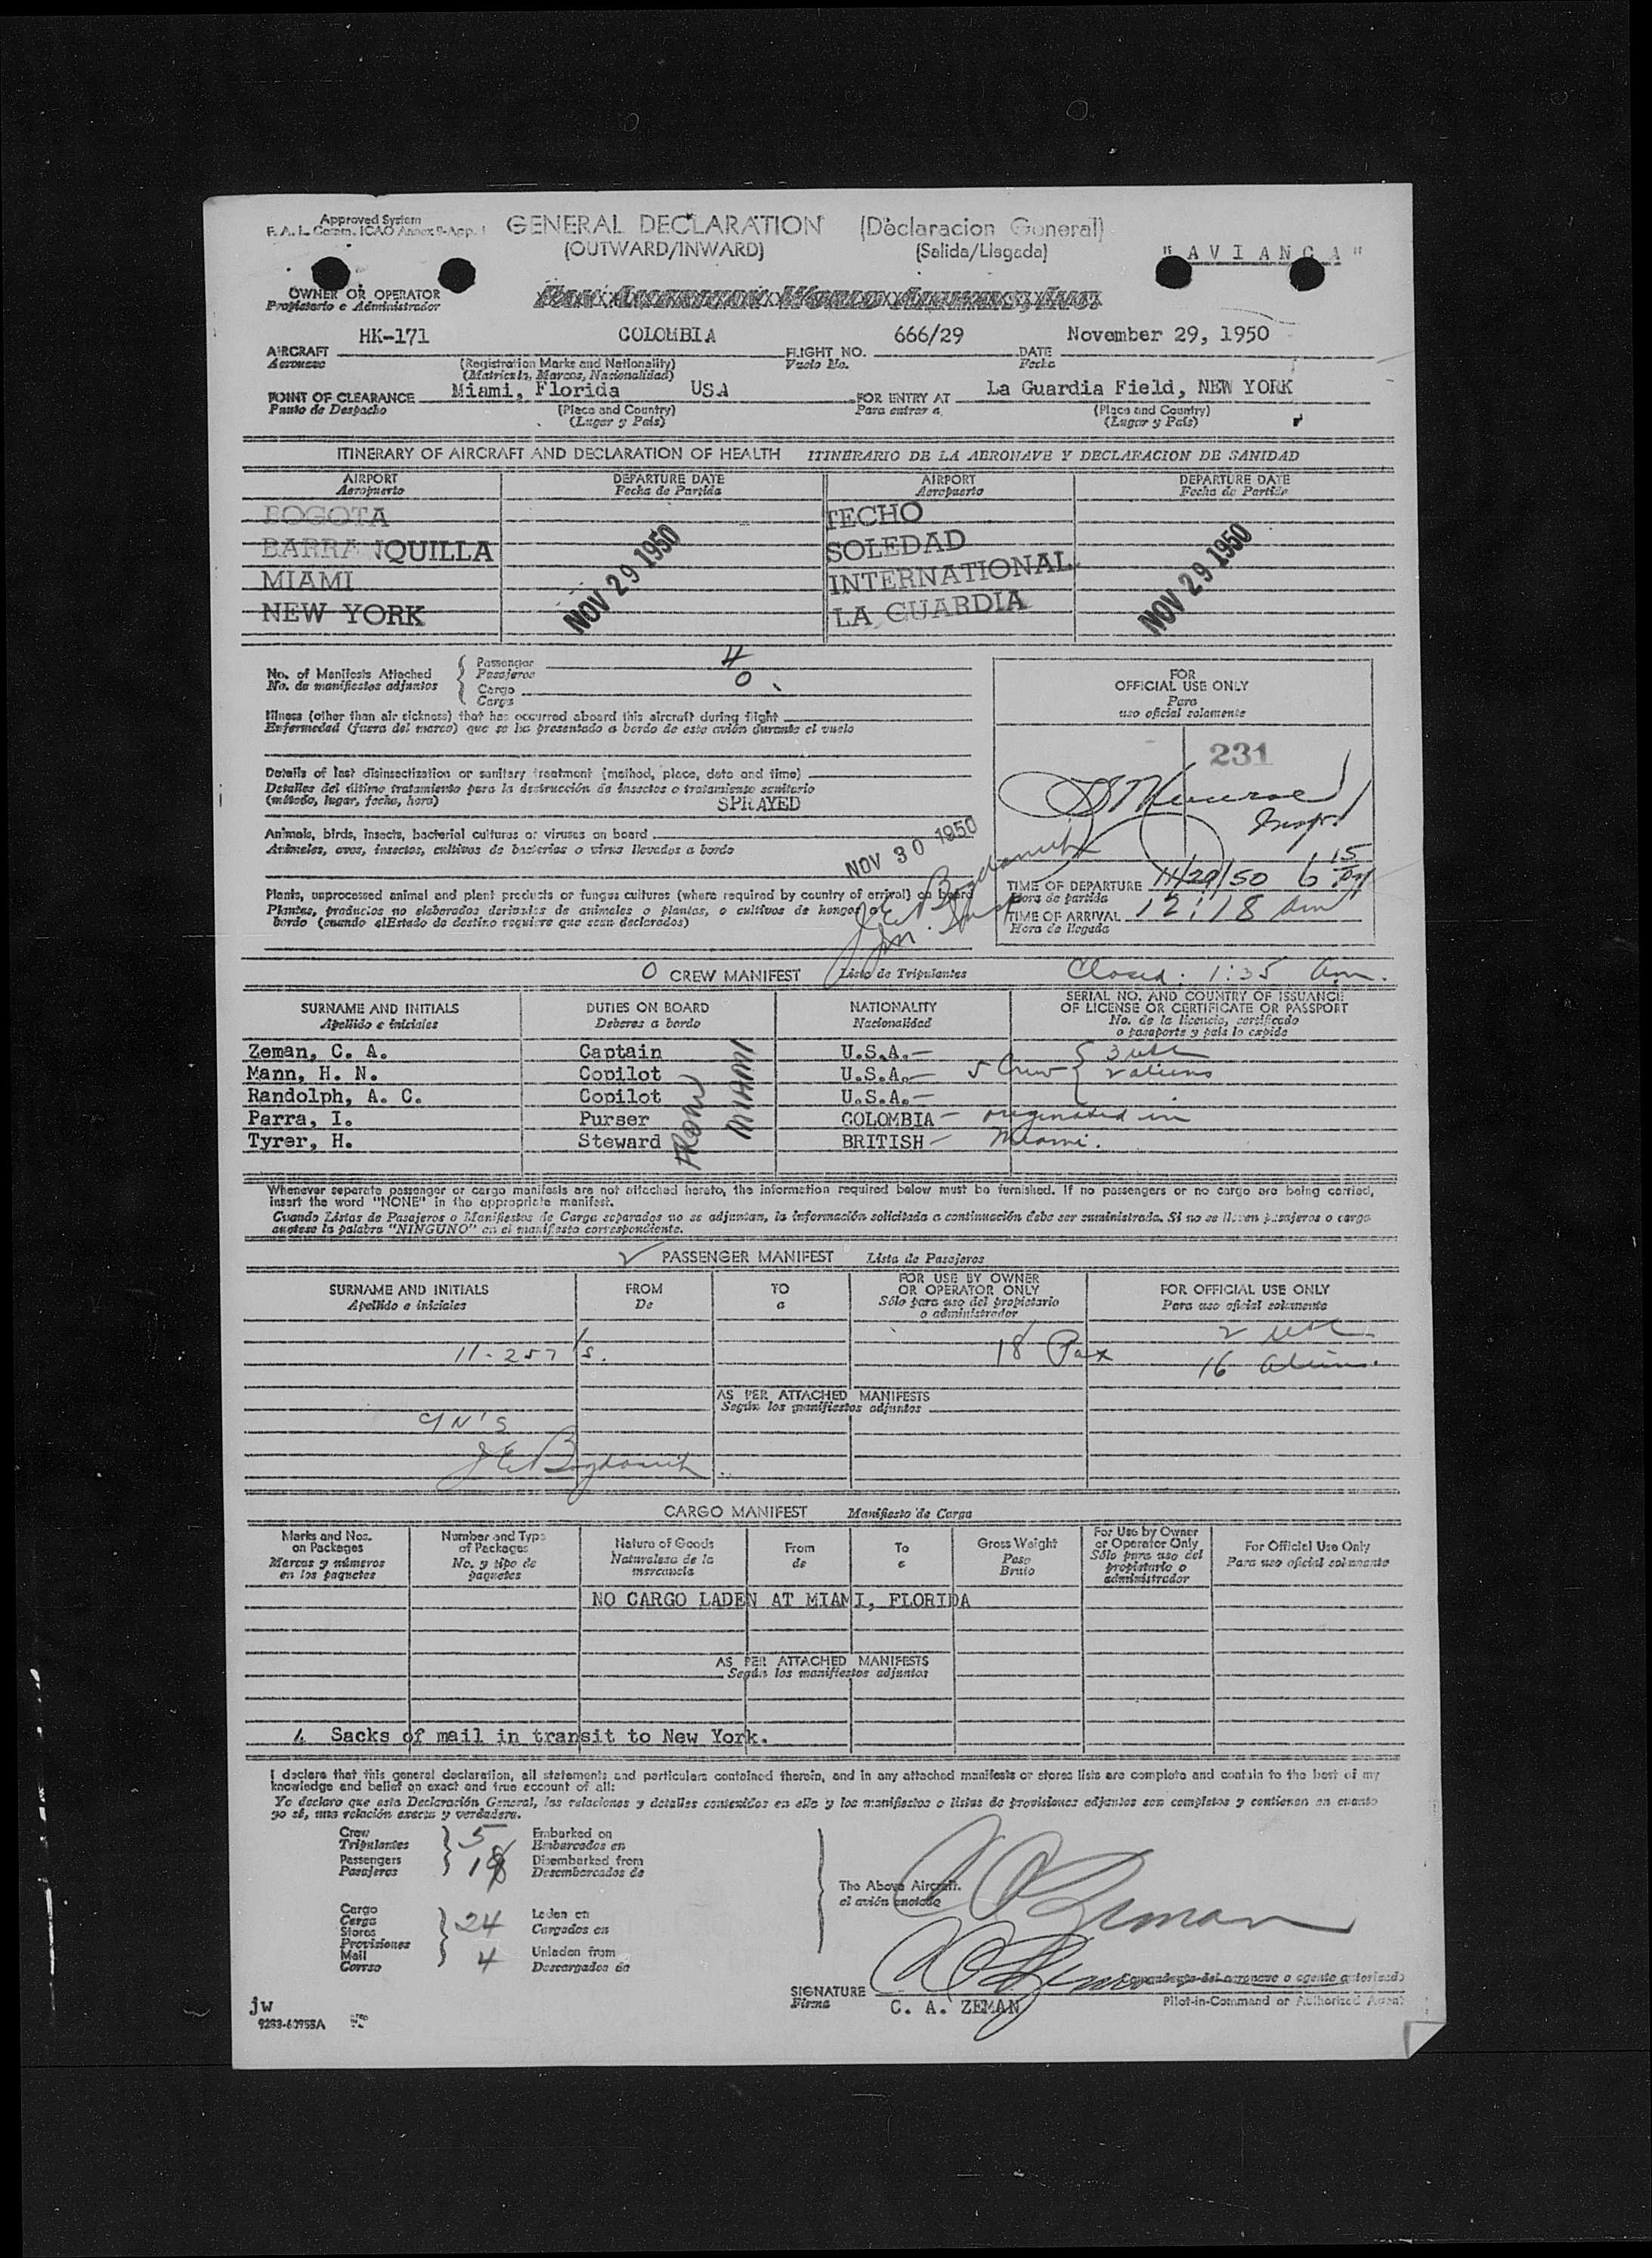 Approved System
F. A. L. Comm. ICAO Annex 9-App. 1
GENERAL DECLARATION (Declaracion General)
(OUTWARD/INWARD) (Salida/Llegada)
"AVIANCA"
OWNER OR OPERATOR
Propietario e Administrador
Pan American World Airways, Inc.
HK-171 COLOMBIA 666/29 November 29, 1950
AIRCRAFT (Registration Marks and Nationality) FLIGHT NO. DATE
Aeronave (Matricula, Marcas, Nacionalidad) Vuelo No. Fecha
Miami, Florida USA La Guardia Field, NEW YORK
POINT OF CLEARANCE (Place and Country) FOR ENTRY AT (Place and Country)
Punto de Despacho (Lugar y País) Para entrar a (Lugar y País)
ITINERARY OF AIRCRAFT AND DECLARATION OF HEALTH ITINERARIO DE LA AERONAVE Y DECLARACION DE SANIDAD
AIRPORT DEPARTURE DATE AIRPORT DEPARTURE DATE
Aeropuerto Fecha de Partida Aeropuerto Fecha de Partida
BOGOTA TECHO
BARRANQUILLA NOV 29 1950 SOLEDAD NOV 29 1950
MIAMI INTERNATIONAL
NEW YORK LA GUARDIA
No. of Manifests Attached
No. de manifiestos adjuntos
Passenger 4
Pasajeros
Cargo 0
Carga
Illness (other than air sickness) that has occurred aboard this aircraft during flight
Enfermedad (fuera del mareo) que se ha presentado a bordo de este avión durante el vuelo
Details of last disinsectization or sanitary treatment (method, place, date and time)
Detalles del último tratamiento para la destrucción de insectos o tratamiento sanitario
(método, lugar, fecha, hora) SPRAYED
Animals, birds, insects, bacterial cultures or viruses on board
Animales, aves, insectos, cultivos de bacterias o virus llevados a bordo
NOV 30 1950
Plants, unprocessed animal and plant products or fungus cultures (where required by country of arrival) on board
Plantas, productos no elaborados derivados de animales o plantas, o cultivos de hongos a
bordo (cuando el Estado de destino requiere que sean declarados)
J E Bogdanich
FOR
OFFICIAL USE ONLY
Para
uso oficial solamente
231
Inspr
TIME OF DEPARTURE 11/29/50 6 15 PM
Hora de partida
TIME OF ARRIVAL 12:18 am
Hora de llegada
0 CREW MANIFEST Lista de Tripulantes Closed: 1:35 am.
SURNAME AND INITIALS DUTIES ON BOARD NATIONALITY SERIAL NO. AND COUNTRY OF ISSUANCE
OF LICENSE OR CERTIFICATE OR PASSPORT
Apellido e iniciales Deberes a bordo Nacionalidad No. de la licencia, certificado
o pasaporte y país lo expide
Zeman, C. A. Captain U.S.A.— 3 USC
Mann, H. N. Copilot U.S.A.— 5 Crew 2 aliens
Randolph, A. C. Copilot U.S.A.—
Parra, I. Purser COLOMBIA — originated in
Tyrer, H. Steward BRITISH — Miami.
FROM MIAMI
Whenever separate passenger or cargo manifests are not attached hereto, the information required below must be furnished. If no passengers or no cargo are being carried,
insert the word "NONE" in the appropriate manifest.
Cuando Listas de Pasajeros o Manifiestos de Carga separados no se adjuntan, la información solicitada a continuación debe ser suministrada. Si no se llevan pasajeros o carga
anotese la palabra "NINGUNO" en el manifiesto correspondiente.
PASSENGER MANIFEST Lista de Pasajeros
SURNAME AND INITIALS FROM TO FOR USE BY OWNER
OR OPERATOR ONLY FOR OFFICIAL USE ONLY
Apellido e iniciales De a Sólo para uso del propietario
o administrador Para uso oficial solamente
2 USC
11-257's. 18 Pax 16 aliens.
AS PER ATTACHED MANIFESTS
Según los manifiestos adjuntos
9 N'S
J E Bogdanich
CARGO MANIFEST Manifiesto de Carga
Marks and Nos.
on Packages
Marcas y números
en los paquetes
Number and Type
of Packages
No. y tipo de
paquetes
Nature of Goods
Naturaleza de la
mercancia
From
de
To
a
Gross Weight
Peso
Bruto
For Use by Owner
or Operator Only
Sólo para uso del
propietario o
administrador
For Official Use Only
Para uso oficial solamente
NO CARGO LADEN AT MIAMI, FLORIDA
AS PER ATTACHED MANIFESTS
Según los manifiestos adjuntos
Sacks of mail in transit to New York.
I declare that this general declaration, all statements and particulars contained therein, and in any attached manifests or stores lists are complete and contain to the best of my
knowledge and belief an exact and true account of all:
Yo declaro que esta Declaración General, las relaciones y detalles contenidos en ella y los manifiestos o listas de provisiones adjuntos son completos y contienen en cuanto
yo sé, una relación exacta y verdadera.
Crew 5 Embarked on
Tripulantes Embarcados en
Passengers 18 Disembarked from
Pasajeros Desembarcados de
The Above Aircraft.
el avión anotado
C A Zeman
Cargo
Carga 24 Laden on
Stores Cargados en
Provisiones
Mail 4 Unladen from
Correo Descargados de
C A Zeman
SIGNATURE Comandante del aeronave o agente autorizado
Firma C. A. ZEMAN Pilot-in-Command or Authorized Agent
jw
9283-60955A